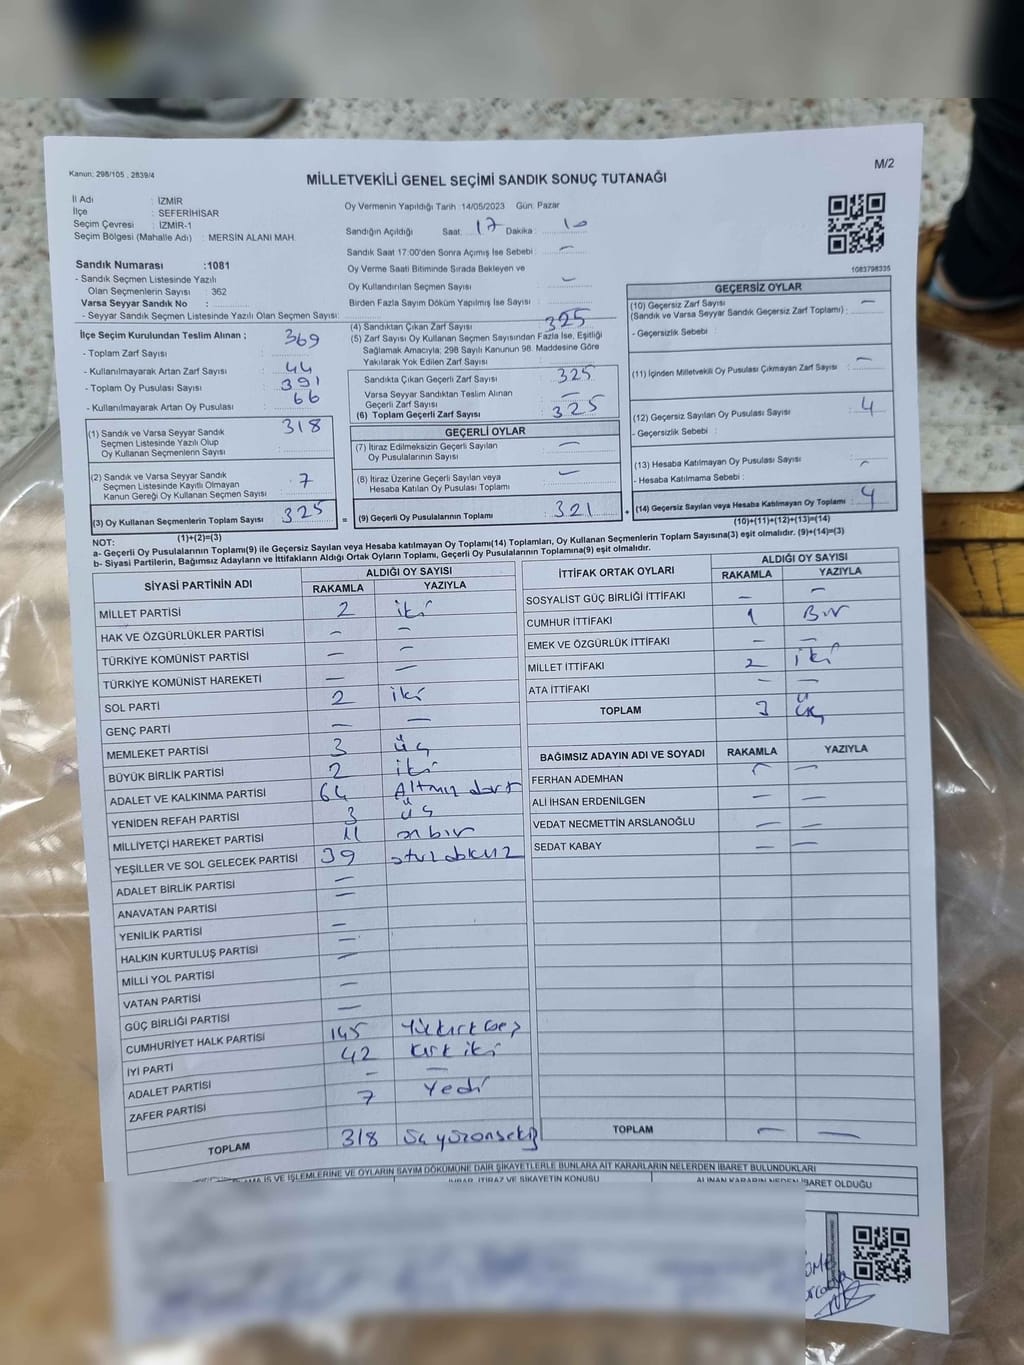 Kanun: 298/105 , 2839/4
M/2
MİLLETVEKİLİ GENEL SEÇİMİ SANDIK SONUÇ TUTANAĞI
İl Adı : İZMİR
İlçe : SEFERİHİSAR
Seçim Çevresi : İZMİR-1
Seçim Bölgesi (Mahalle Adı) : MERSİN ALANI MAH.
Sandık Numarası :1081
- Sandık Seçmen Listesinde Yazılı
Olan Seçmenlerin Sayısı : 362
Varsa Seyyar Sandık No :
- Seyyar Sandık Seçmen Listesinde Yazılı Olan Seçmen Sayısı:
Oy Vermenin Yapıldığı Tarih :14/05/2023 Gün: Pazar
Sandığın Açıldığı Saat: 17 Dakika : 10
Sandık Saat 17.00'den Sonra Açılmış İse Sebebi : —
Oy Verme Saati Bitiminde Sırada Bekleyen ve
Oy Kullandırılan Seçmen Sayısı : —
Birden Fazla Sayım Döküm Yapılmış İse Sayısı :
1083798335
İlçe Seçim Kurulundan Teslim Alınan ;
- Toplam Zarf Sayısı : 369
- Kullanılmayarak Artan Zarf Sayısı : 44
- Toplam Oy Pusulası Sayısı : 391
- Kullanılmayarak Artan Oy Pusulası : 66
(1) Sandık ve Varsa Seyyar Sandık
Seçmen Listesinde Yazılı Olup
Oy Kullanan Seçmenlerin Sayısı : 318
(2) Sandık ve Varsa Seyyar Sandık
Seçmen Listesinde Kayıtlı Olmayan
Kanun Gereği Oy Kullanan Seçmen Sayısı : 7
(3) Oy Kullanan Seçmenlerin Toplam Sayısı : 325
(1)+(2)=(3)
(4) Sandıktan Çıkan Zarf Sayısı : 325
(5) Zarf Sayısı Oy Kullanan Seçmen Sayısından Fazla İse, Eşitliği
Sağlamak Amacıyla; 298 Sayılı Kanunun 98. Maddesine Göre
Yakılarak Yok Edilen Zarf Sayısı :
Sandıkta Çıkan Geçerli Zarf Sayısı : 325
Varsa Seyyar Sandıktan Teslim Alınan
Geçerli Zarf Sayısı : —
(6) Toplam Geçerli Zarf Sayısı : 325
GEÇERLİ OYLAR
(7) İtiraz Edilmeksizin Geçerli Sayılan
Oy Pusulalarının Sayısı : —
(8) İtiraz Üzerine Geçerli Sayılan veya
Hesaba Katılan Oy Pusulası Toplamı : —
= (9) Geçerli Oy Pusulalarının Toplamı : 321
GEÇERSİZ OYLAR
(10) Geçersiz Zarf Sayısı
(Sandık ve Varsa Seyyar Sandık Geçersiz Zarf Toplamı) : —
- Geçersizlik Sebebi :
(11) İçinden Milletvekili Oy Pusulası Çıkmayan Zarf Sayısı : —
(12) Geçersiz Sayılan Oy Pusulası Sayısı : 4
- Geçersizlik Sebebi :
(13) Hesaba Katılmayan Oy Pusulası Sayısı : —
- Hesaba Katılmama Sebebi :
+ (14) Geçersiz Sayılan veya Hesaba Katılmayan Oy Toplamı : 4
(10)+(11)+(12)+(13)=(14)
NOT:
a- Geçerli Oy Pusulalarının Toplamı(9) ile Geçersiz Sayılan veya Hesaba katılmayan Oy Toplamı(14) Toplamları, Oy Kullanan Seçmenlerin Toplam Sayısına(3) eşit olmalıdır. (9)+(14)=(3)
b- Siyasi Partilerin, Bağımsız Adayların ve İttifakların Aldığı Ortak Oyların Toplamı, Geçerli Oy Pusulalarının Toplamına(9) eşit olmalıdır.
SİYASİ PARTİNİN ADI ALDIĞI OY SAYISI
RAKAMLA YAZIYLA
MİLLET PARTİSİ 2 iki
HAK VE ÖZGÜRLÜKLER PARTİSİ — —
TÜRKİYE KOMÜNİST PARTİSİ — —
TÜRKİYE KOMÜNİST HAREKETİ — —
SOL PARTİ 2 iki
GENÇ PARTİ — —
MEMLEKET PARTİSİ 3 üç
BÜYÜK BİRLİK PARTİSİ 2 iki
ADALET VE KALKINMA PARTİSİ 64 Altmış dört
YENİDEN REFAH PARTİSİ 3 üç
MİLLİYETÇİ HAREKET PARTİSİ 11 on bir
YEŞİLLER VE SOL GELECEK PARTİSİ 39 otuz dokuz
ADALET BİRLİK PARTİSİ —
ANAVATAN PARTİSİ —
YENİLİK PARTİSİ —
HALKIN KURTULUŞ PARTİSİ —
MİLLİ YOL PARTİSİ —
VATAN PARTİSİ —
GÜÇ BİRLİĞİ PARTİSİ —
CUMHURİYET HALK PARTİSİ 145 Yüzkırk beş
İYİ PARTİ 42 Kırk iki
ADALET PARTİSİ — —
ZAFER PARTİSİ 7 Yedi
TOPLAM 318 üçyüzonsekiz
İTTİFAK ORTAK OYLARI ALDIĞI OY SAYISI
RAKAMLA YAZIYLA
SOSYALİST GÜÇ BİRLİĞİ İTTİFAKI — —
CUMHUR İTTİFAKI 1 Bir
EMEK VE ÖZGÜRLÜK İTTİFAKI — —
MİLLET İTTİFAKI 2 iki
ATA İTTİFAKI — —
TOPLAM 3 üç
BAĞIMSIZ ADAYIN ADI VE SOYADI RAKAMLA YAZIYLA
FERHAN ADEMHAN — —
ALİ İHSAN ERDENİLGEN — —
VEDAT NECMETTİN ARSLANOĞLU — —
SEDAT KABAY — —
TOPLAM — —
İŞ VE İŞLEMLERİNE VE OYLARIN SAYIM DÖKÜMÜNE DAİR ŞİKAYETLERLE BUNLARA AİT KARARLARIN NELERDEN İBARET BULUNDUKLARI
İHBAR, İTİRAZ VE ŞİKAYETİN KONUSU
ALINAN KARARIN NEDEN İBARET OLDUĞU